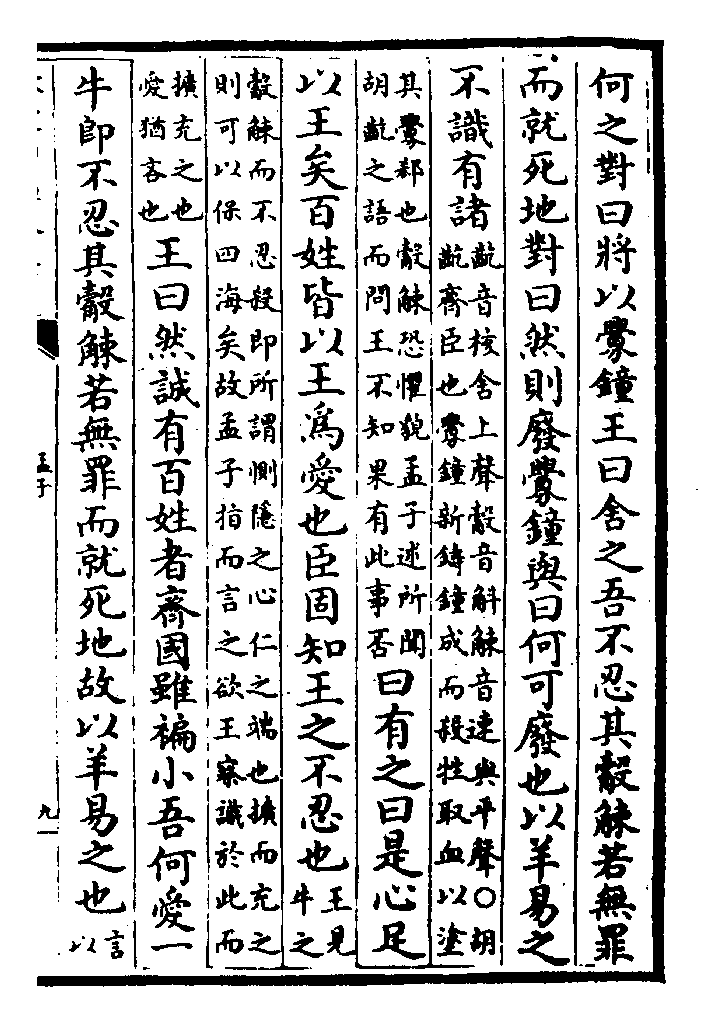 何之對曰將以釁鐘王曰舍之吾不忍其觳觫若無罪
而就死地對曰然則廢釁鐘與曰何可廢也以羊易之
不識有諸
齕音核舍上聲觳音斛觫音速與平聲○胡
齕齊臣也釁鐘新鑄鐘成而殺牲取血以塗
其釁郄也觳觫恐懼貌孟子述所聞
胡齕之語而問王不知果有此事否
曰有之曰是心足
以王矣百姓皆以王爲愛也臣固知王之不忍也
王見
牛之
觳觫而不忍殺即所謂惻隱之心仁之端也擴而充之
則可以保四海矣故孟子指而言之欲王察識於此而
擴充之也
愛猶吝也
王曰然誠有百姓者齊國雖褊小吾何愛一
牛即不忍其觳觫若無罪而就死地故以羊易之也
言
以
孟子
九